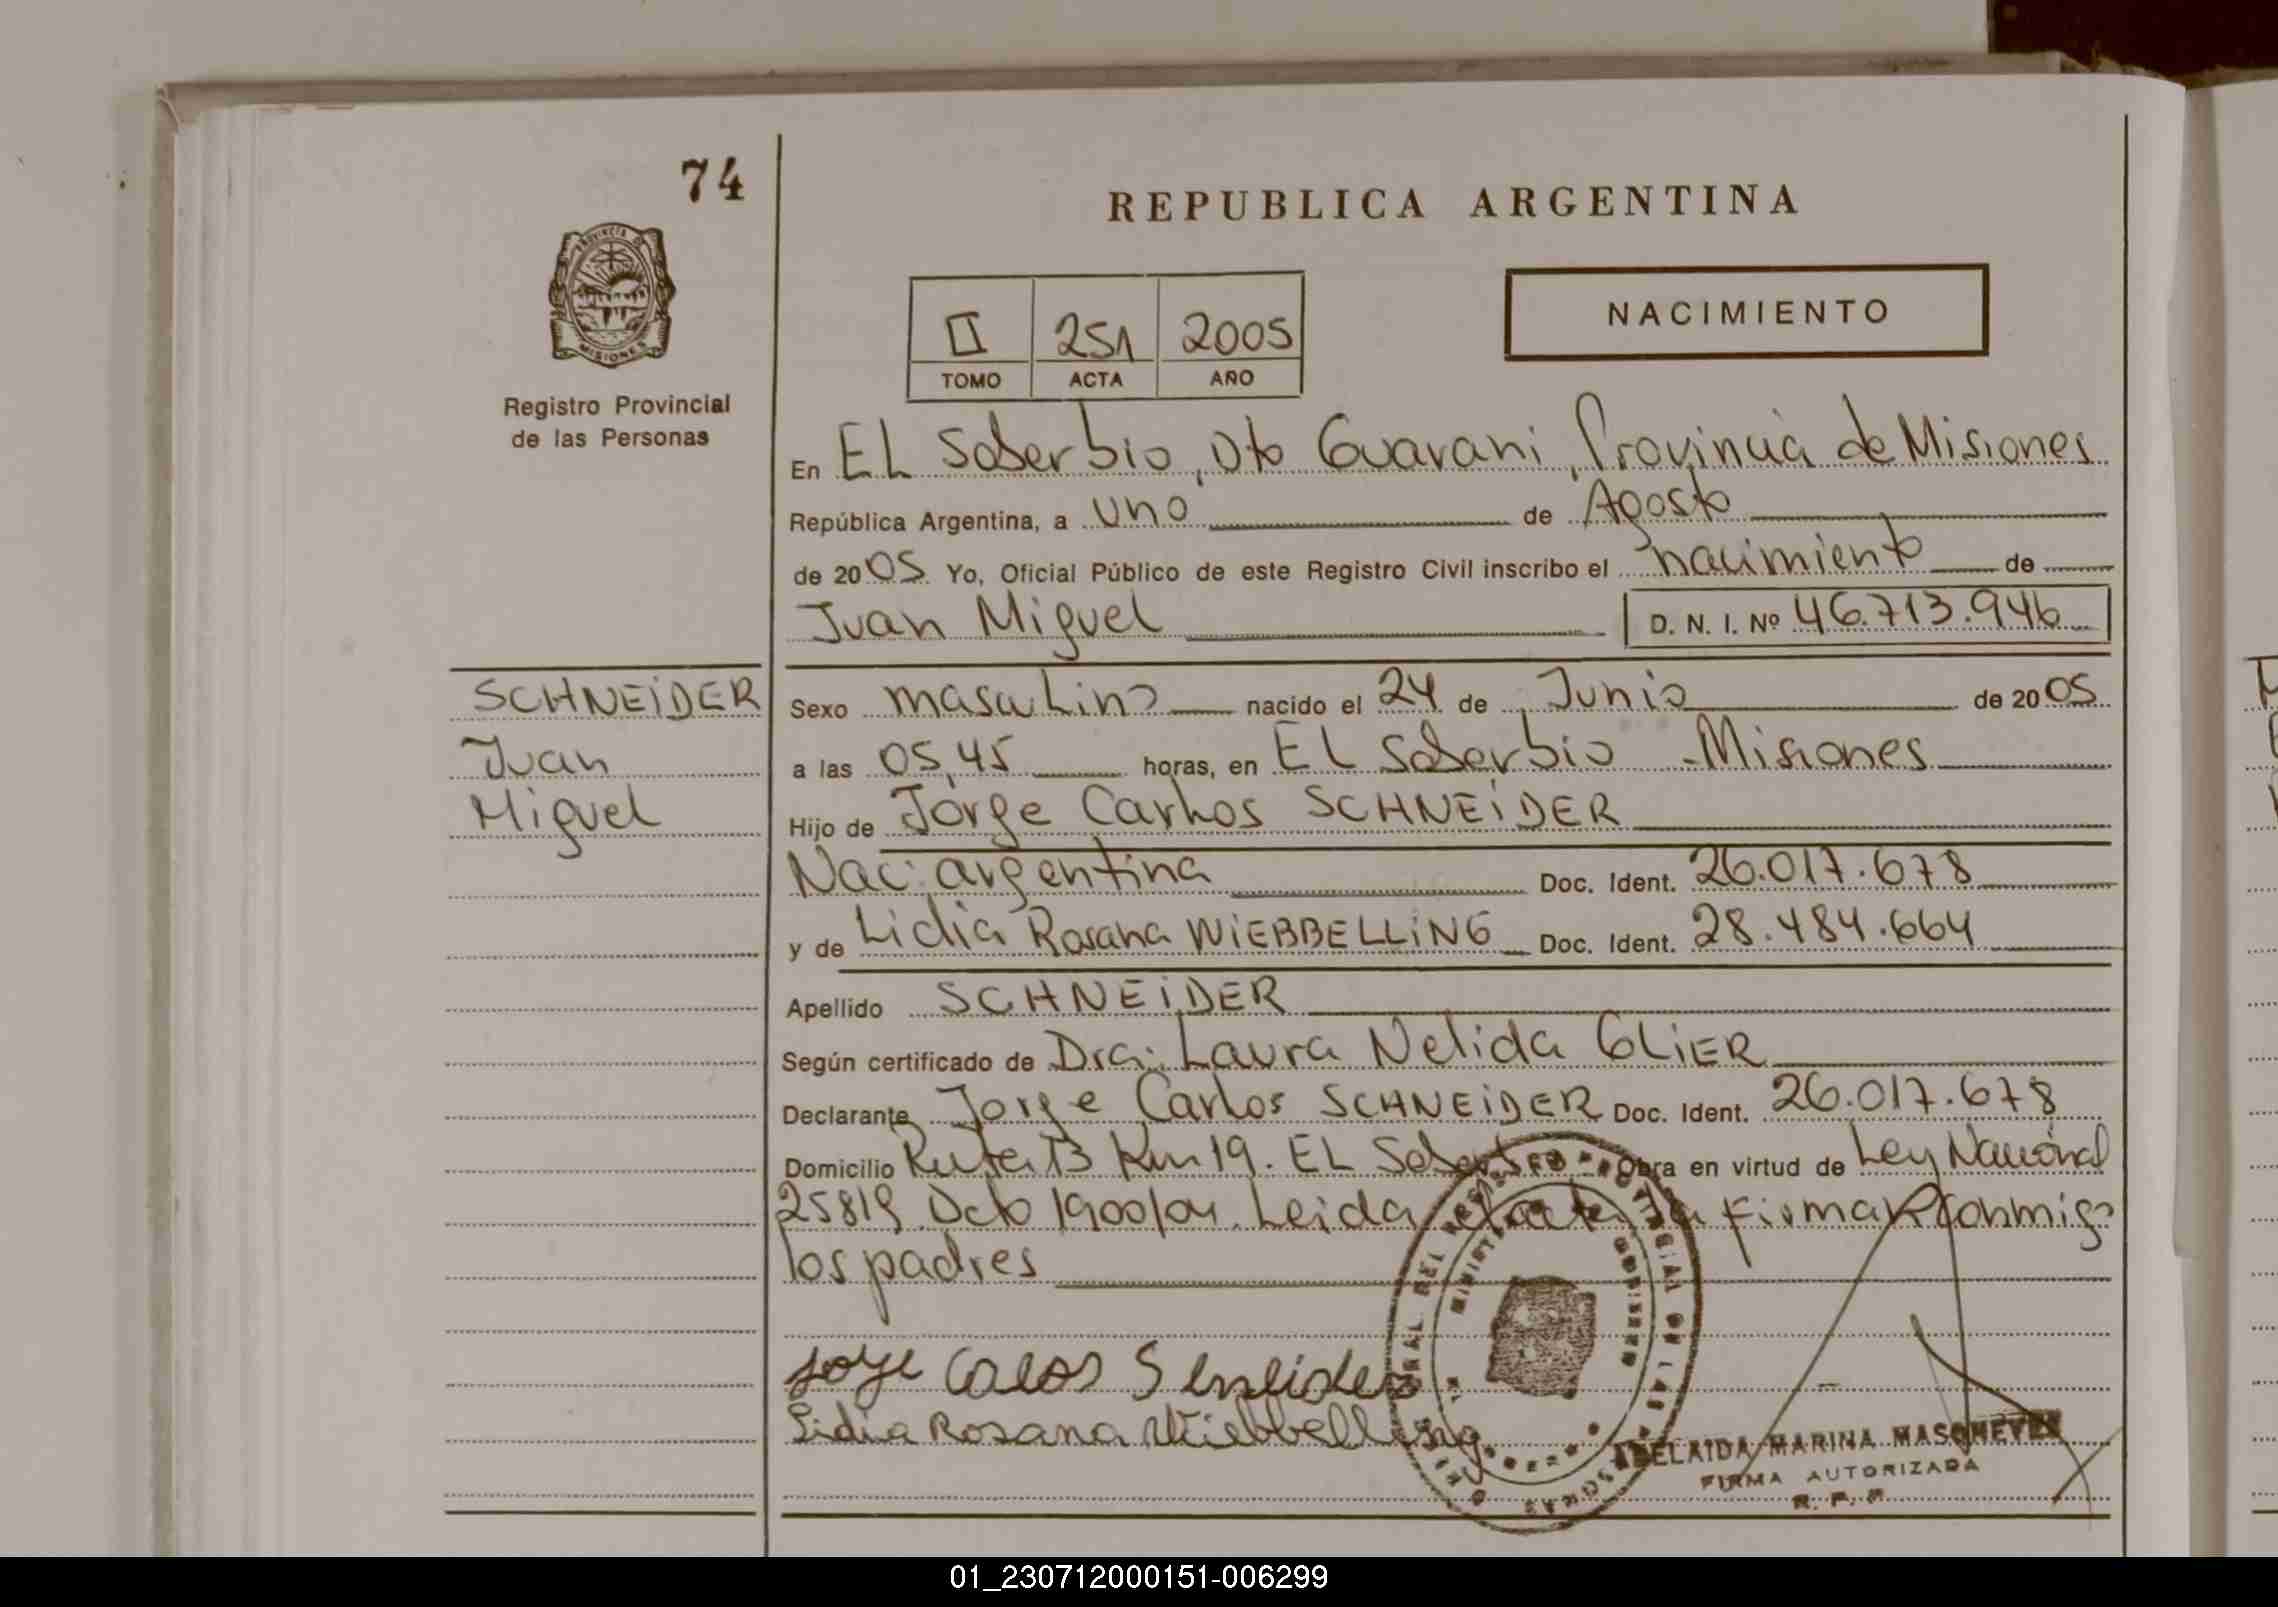 74
REPUBLICA ARGENTINA
PROVINCIA DE
MISIONES
Registro Provincial
de las Personas
II 251 2005
TOMO ACTA AÑO
NACIMIENTO
En EL Soberbio, Dto Guarani, Provincia de Misiones
República Argentina, a uno de Agosto
de 2005 Yo, Oficial Público de este Registro Civil inscribo el nacimiento de
Juan Miguel D. N. I. Nº 46.713.946
SCHNEiDER
Juan
Miguel
Sexo masculino nacido el 24 de Junio de 2005
a las 05,45 horas, en EL Soberbio - Misiones
Hijo de Jorge Carlos SCHNEiDER
Nac: argentina Doc. Ident. 26.017.678
y de Lidia Rosana WiEBBELLiNG Doc. Ident. 28.484.664
Apellido SCHNEiDER
Según certificado de Dra: Laura Nelida GLiER
Declarante Jorge Carlos SCHNEiDER Doc. Ident. 26.017.678
Domicilio Ruta 13 Km 19. EL Soberbio Obra en virtud de Ley Nacional
25819 Dcto 1900/04. Leida el acta la firman conmigo
los padres
Lidia Rosana Wiebbelling
ADELAIDA MARINA MASCHEYER
FIRMA AUTORIZADA
R. P. P.
01_230712000151-006299